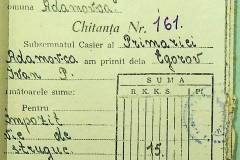 comuna Adamovca
Chitanța Nr. 161.
Subsemnatul Casier al Primariei
Adamovca am primit dela Egorov
Ivan P.
SUMA
mătoarele sume:
R. K. K. S
Pl
Pentru
Impozit
vie de
struguc
15.